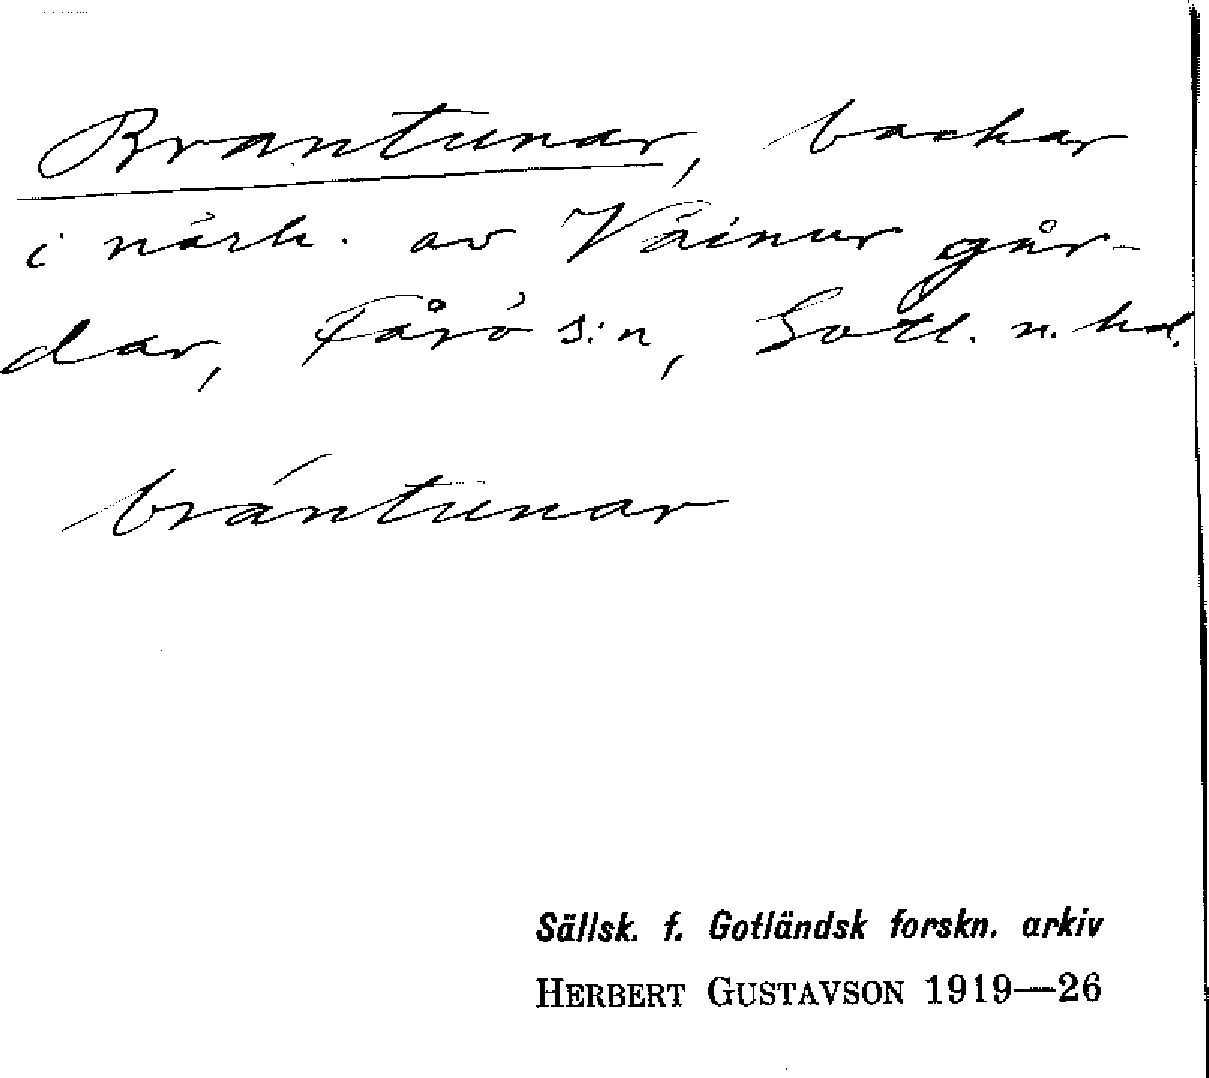 Brantunar, backar
i närh. av Väinur går-
dar, Fårö s:n, Gotl. n. hd.
brántunar
Sällsk. f. Gotländsk forskn. arkiv
HERBERT GUSTAVSON 1919—26